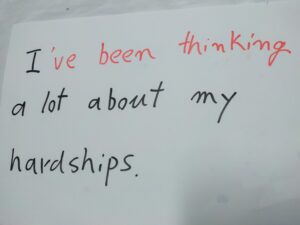 I've been thinking
a lot about my
hardships.